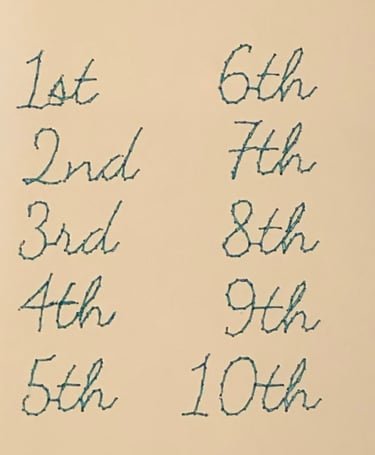 1st
2nd
3rd
4th
5th
6th
7th
8th
9th
10th